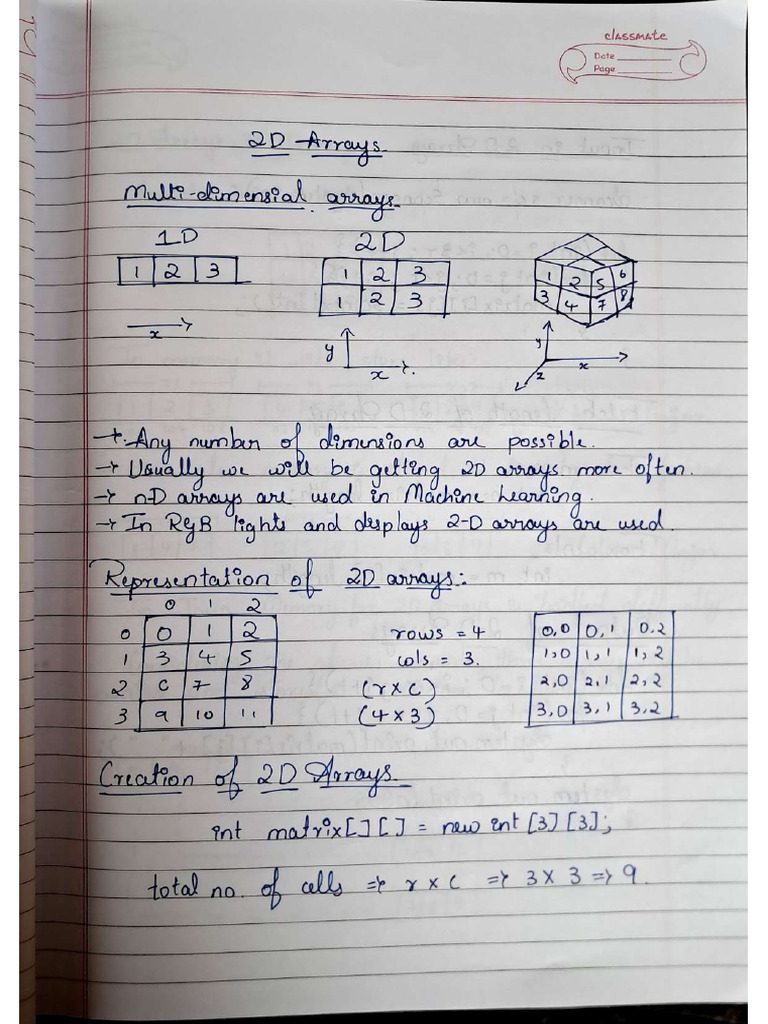 classmate
Date
Page
2D Arrays
Multi-dimensial arrays
1D 2D
1 2 3
1 2 3
1 2 3
1 2 5 6
3 4 7 8
x
y
x
y
x
z
→ Any number of dimensions are possible.
→ Usually we will be getting 2D arrays more often.
→ nD arrays are used in Machine Learning.
→ In RGB lights and displays 2-D arrays are used.
Representation of 2D arrays:
0 1 2
0 0 1 2
1 3 4 5
2 6 7 8
3 9 10 11
rows = 4
cols = 3.
(r x c)
(4 x 3)
0,0 0,1 0.2
1,0 1,1 1,2
2,0 2,1 2,2
3,0 3,1 3,2
Creation of 2D Arrays
int matrix[][] = new int [3][3];
total no. of cells => r x c => 3 x 3 => 9.